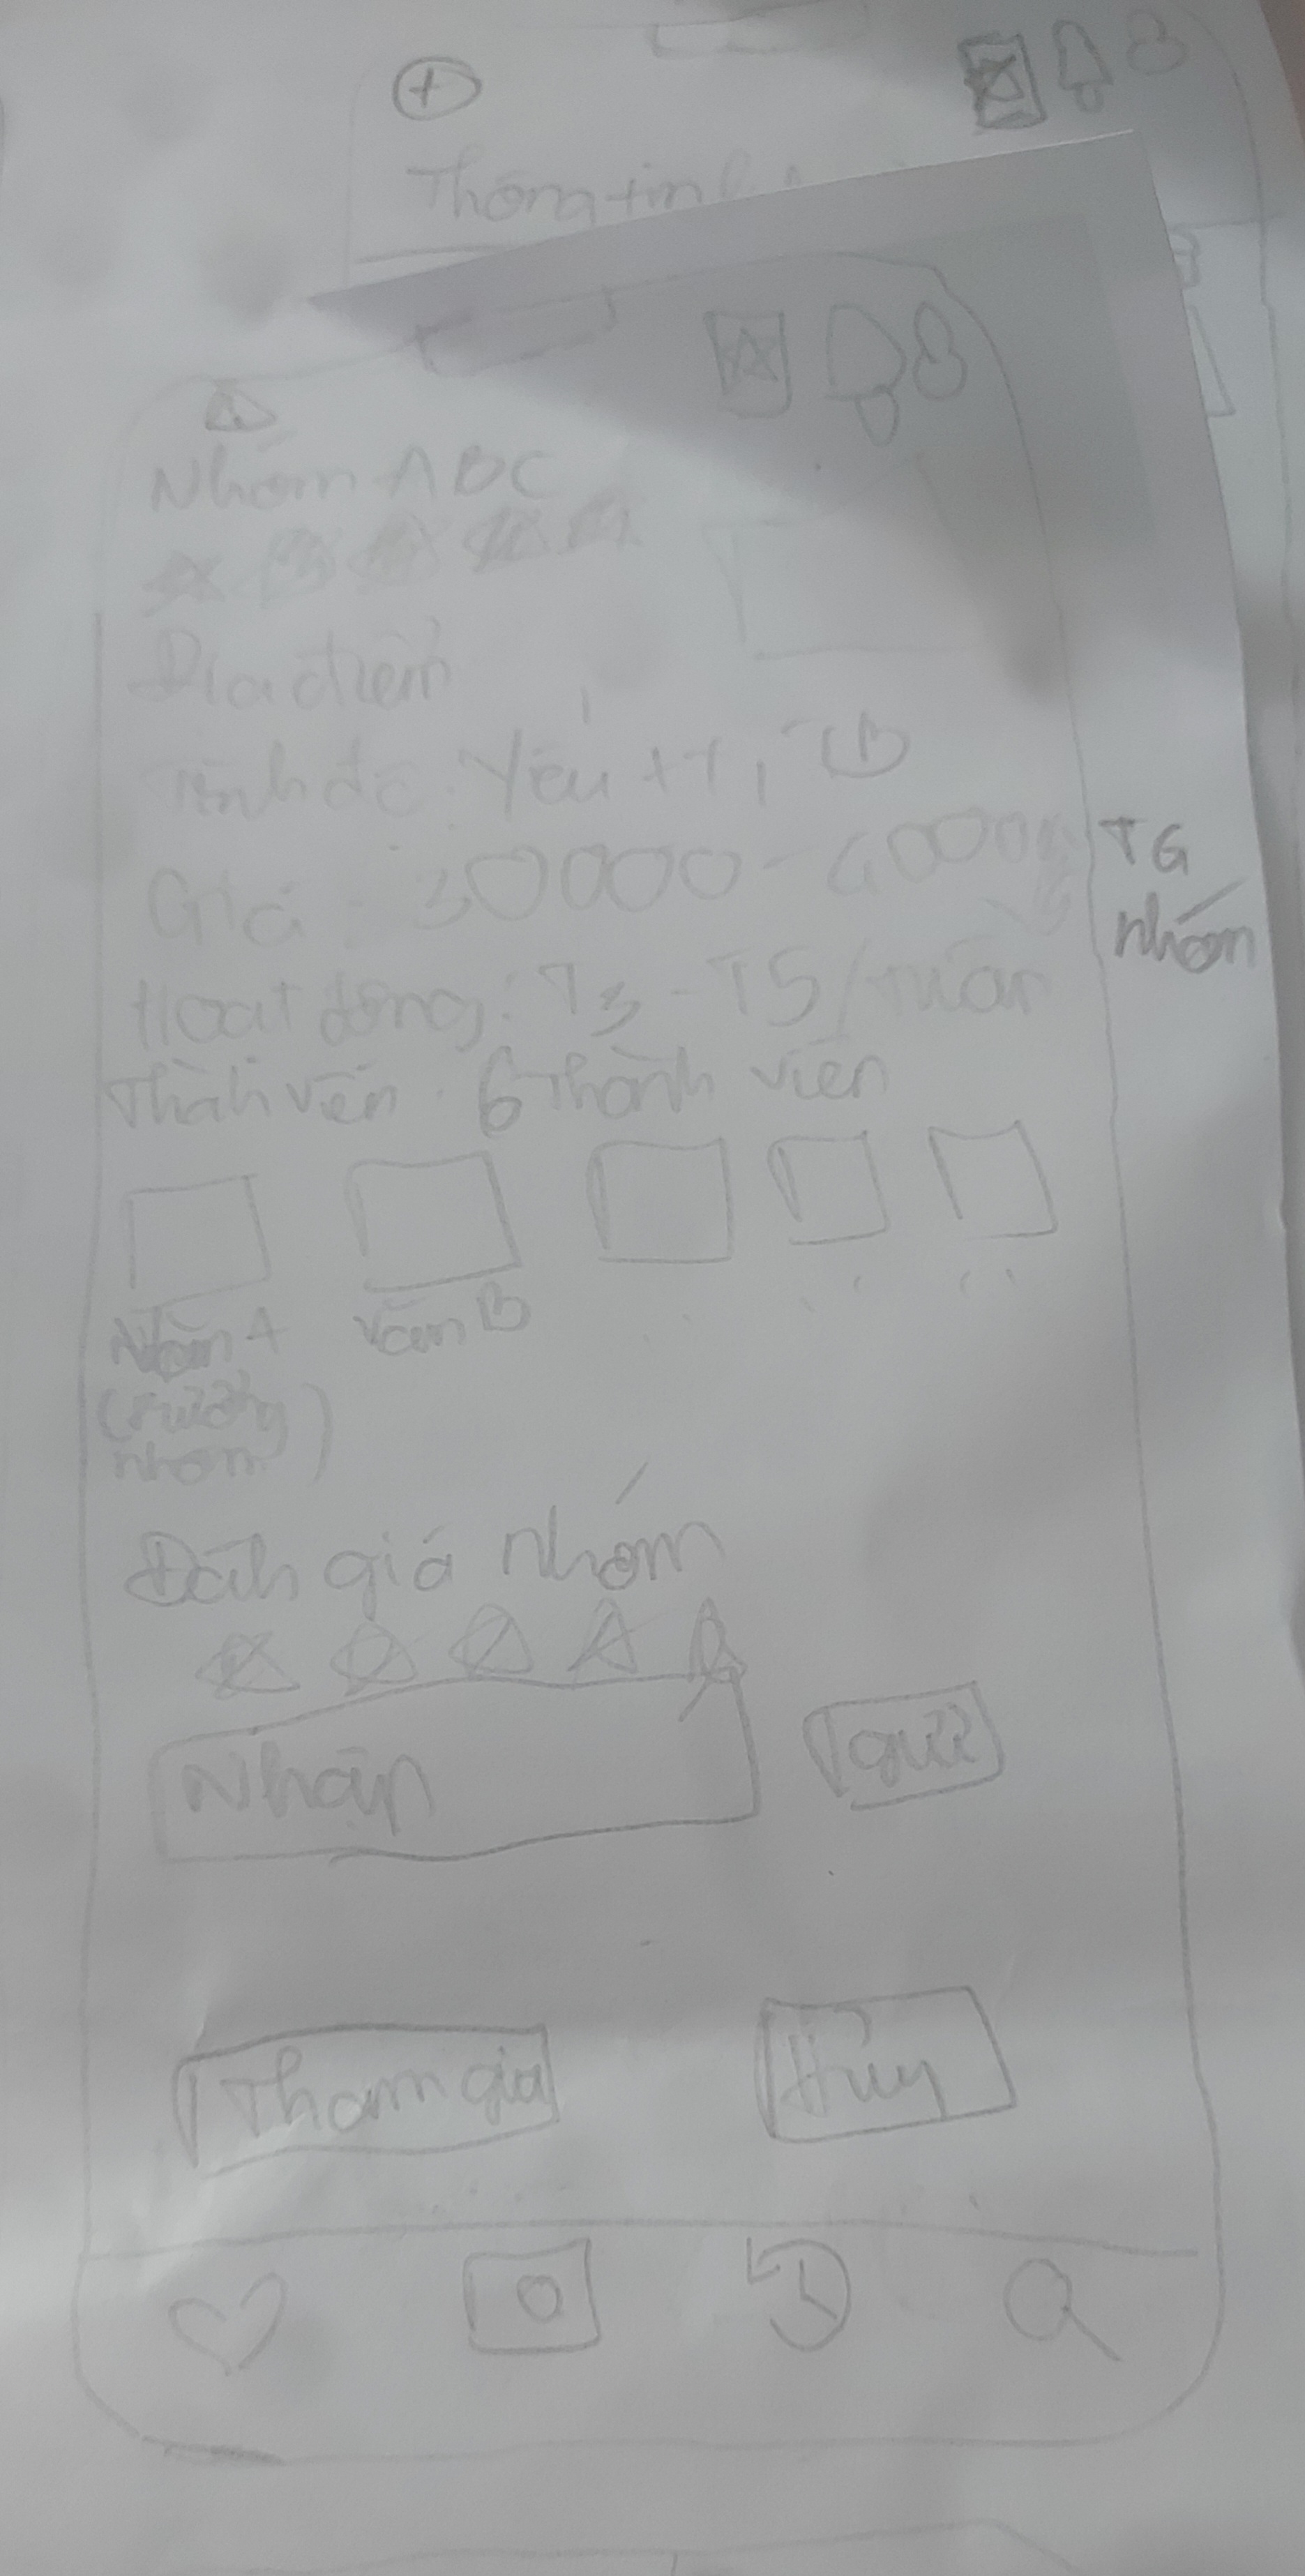 Thông tin
Nhóm ABC
Địa điểm
Yếu
Giá : 30000 -
TG
nhóm
Hoạt động : T3 - T5 / tuần
Thành viên : 6 Thành viên
Văn A
Văn B
(Trưởng
nhóm)
Đánh giá nhóm
Nhập
gửi
Tham gia
Hủy